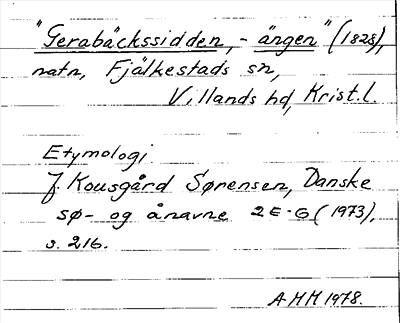 "Gerabäckssidden, - ängen" (1828),
natn, Fjälkestads sn,
Villands hd, Krist.l.
Etymologi
J. Kousgård Sørensen, Danske
sø- og ånavne 2 E-G (1973),
s. 216.
AMM 1978.